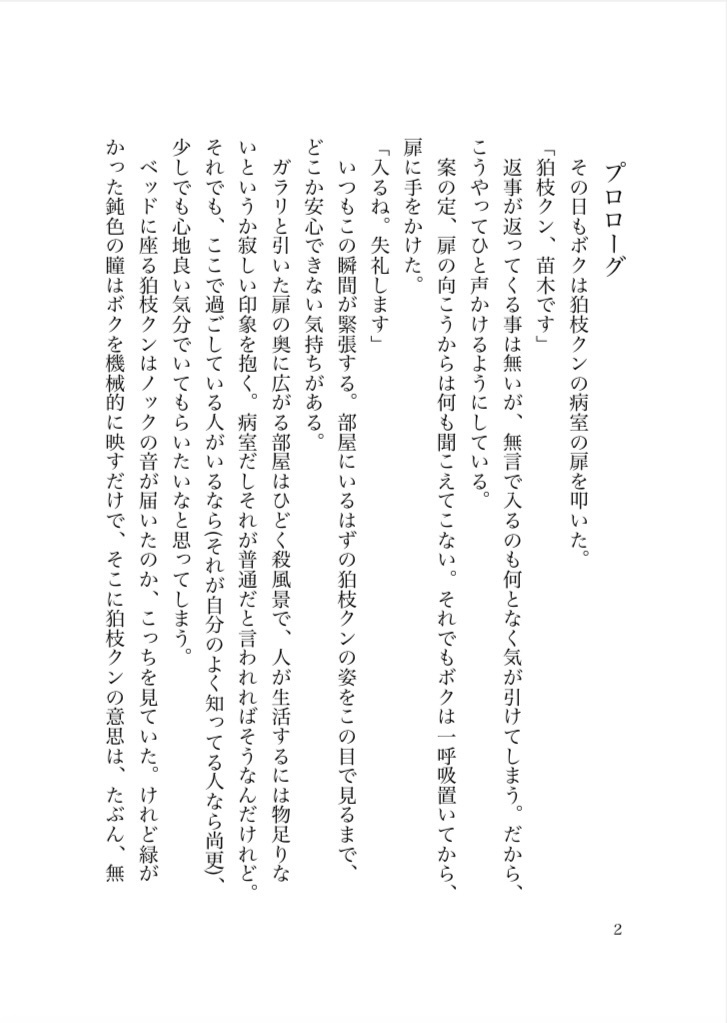 プロローグ
その日もボクは狛枝クンの病室の扉を叩いた。
「狛枝クン、苗木です」
返事が返ってくる事は無いが、無言で入るのも何となく気が引けてしまう。だから、
こうやってひと声かけるようにしている。
案の定、扉の向こうからは何も聞こえてこない。それでもボクは一呼吸置いてから、
扉に手をかけた。
「入るね。失礼します」
いつもこの瞬間が緊張する。部屋にいるはずの狛枝クンの姿をこの目で見るまで、
どこか安心できない気持ちがある。
ガラリと引いた扉の奥に広がる部屋はひどく殺風景で、人が生活するには物足りな
いというか寂しい印象を抱く。病室だしそれが普通だと言われればそうなんだけれど。
それでも、ここで過ごしている人がいるなら(それが自分のよく知ってる人なら尚更)、
少しでも心地良い気分でいてもらいたいなと思ってしまう。
ベッドに座る狛枝クンはノックの音が届いたのか、こっちを見ていた。けれど緑が
かった鈍色の瞳はボクを機械的に映すだけで、そこに狛枝クンの意思は、たぶん、無
2